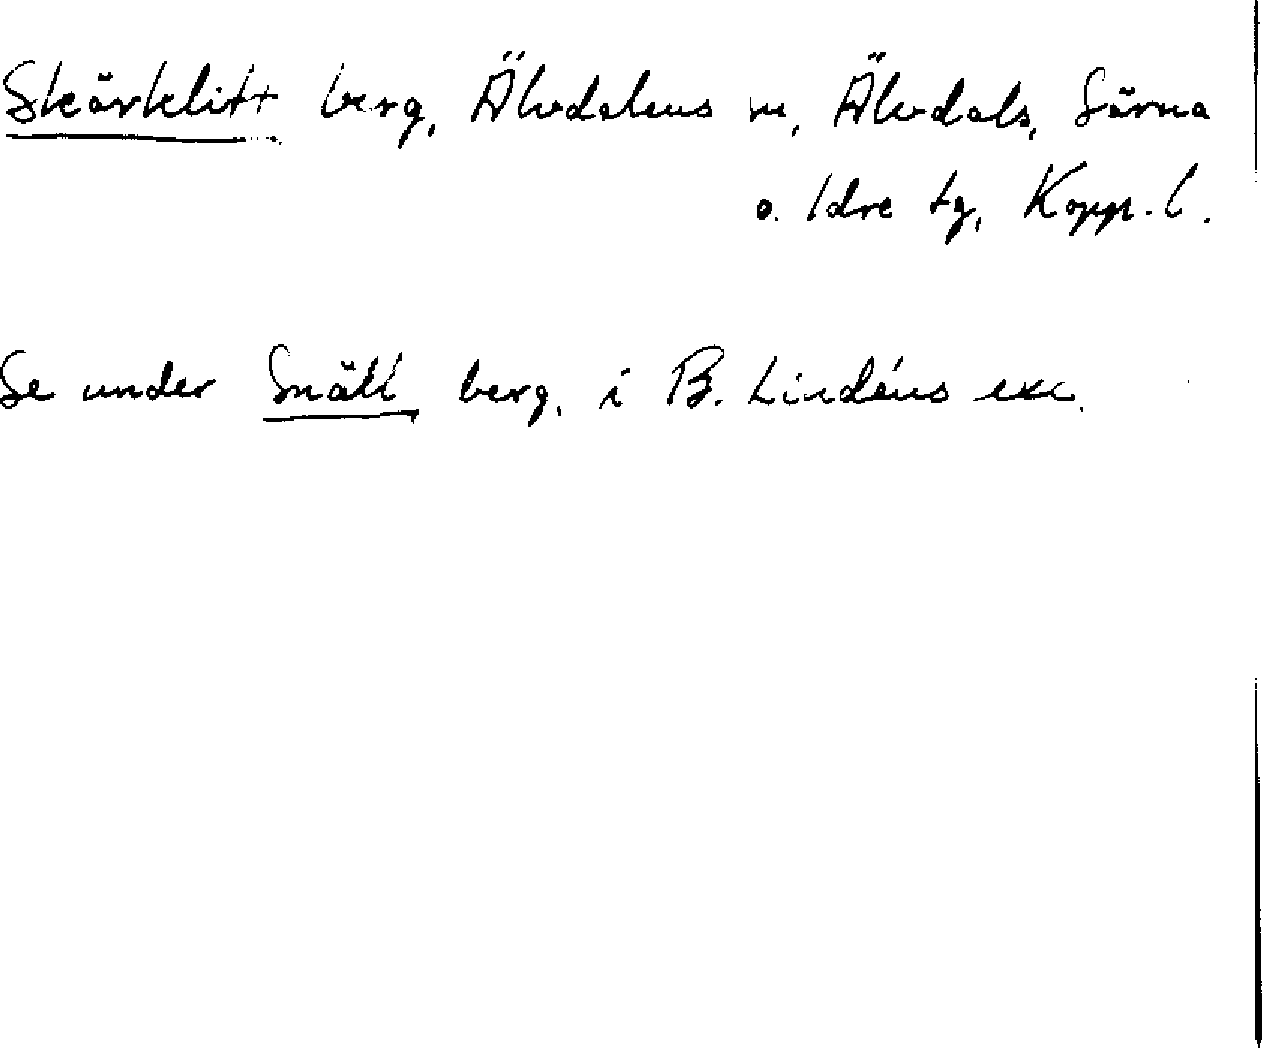 Skärklitt berg, Älvdalens m, Älvdals, Särna
o. Idre tg, Kopp. l.
Se under Snäll berg, i B. Lindéns exc.